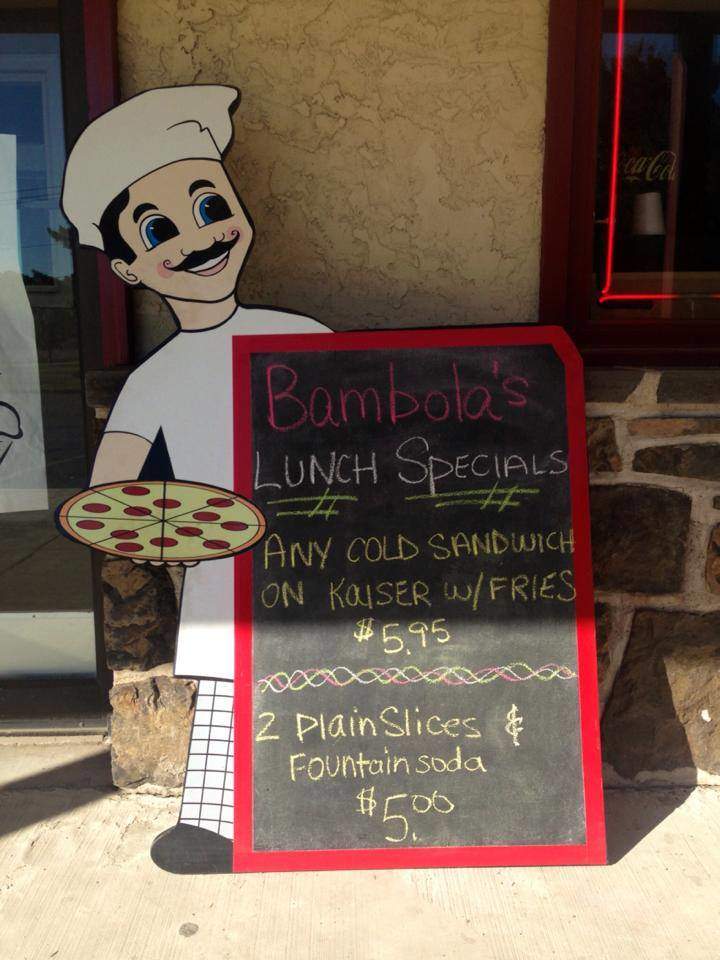 Bambola's
LUNCH SPECIALS
ANY COLD SANDWICH
ON KAISER W/FRIES
$5.95
2 Plain Slices &
Fountain soda
$5.00